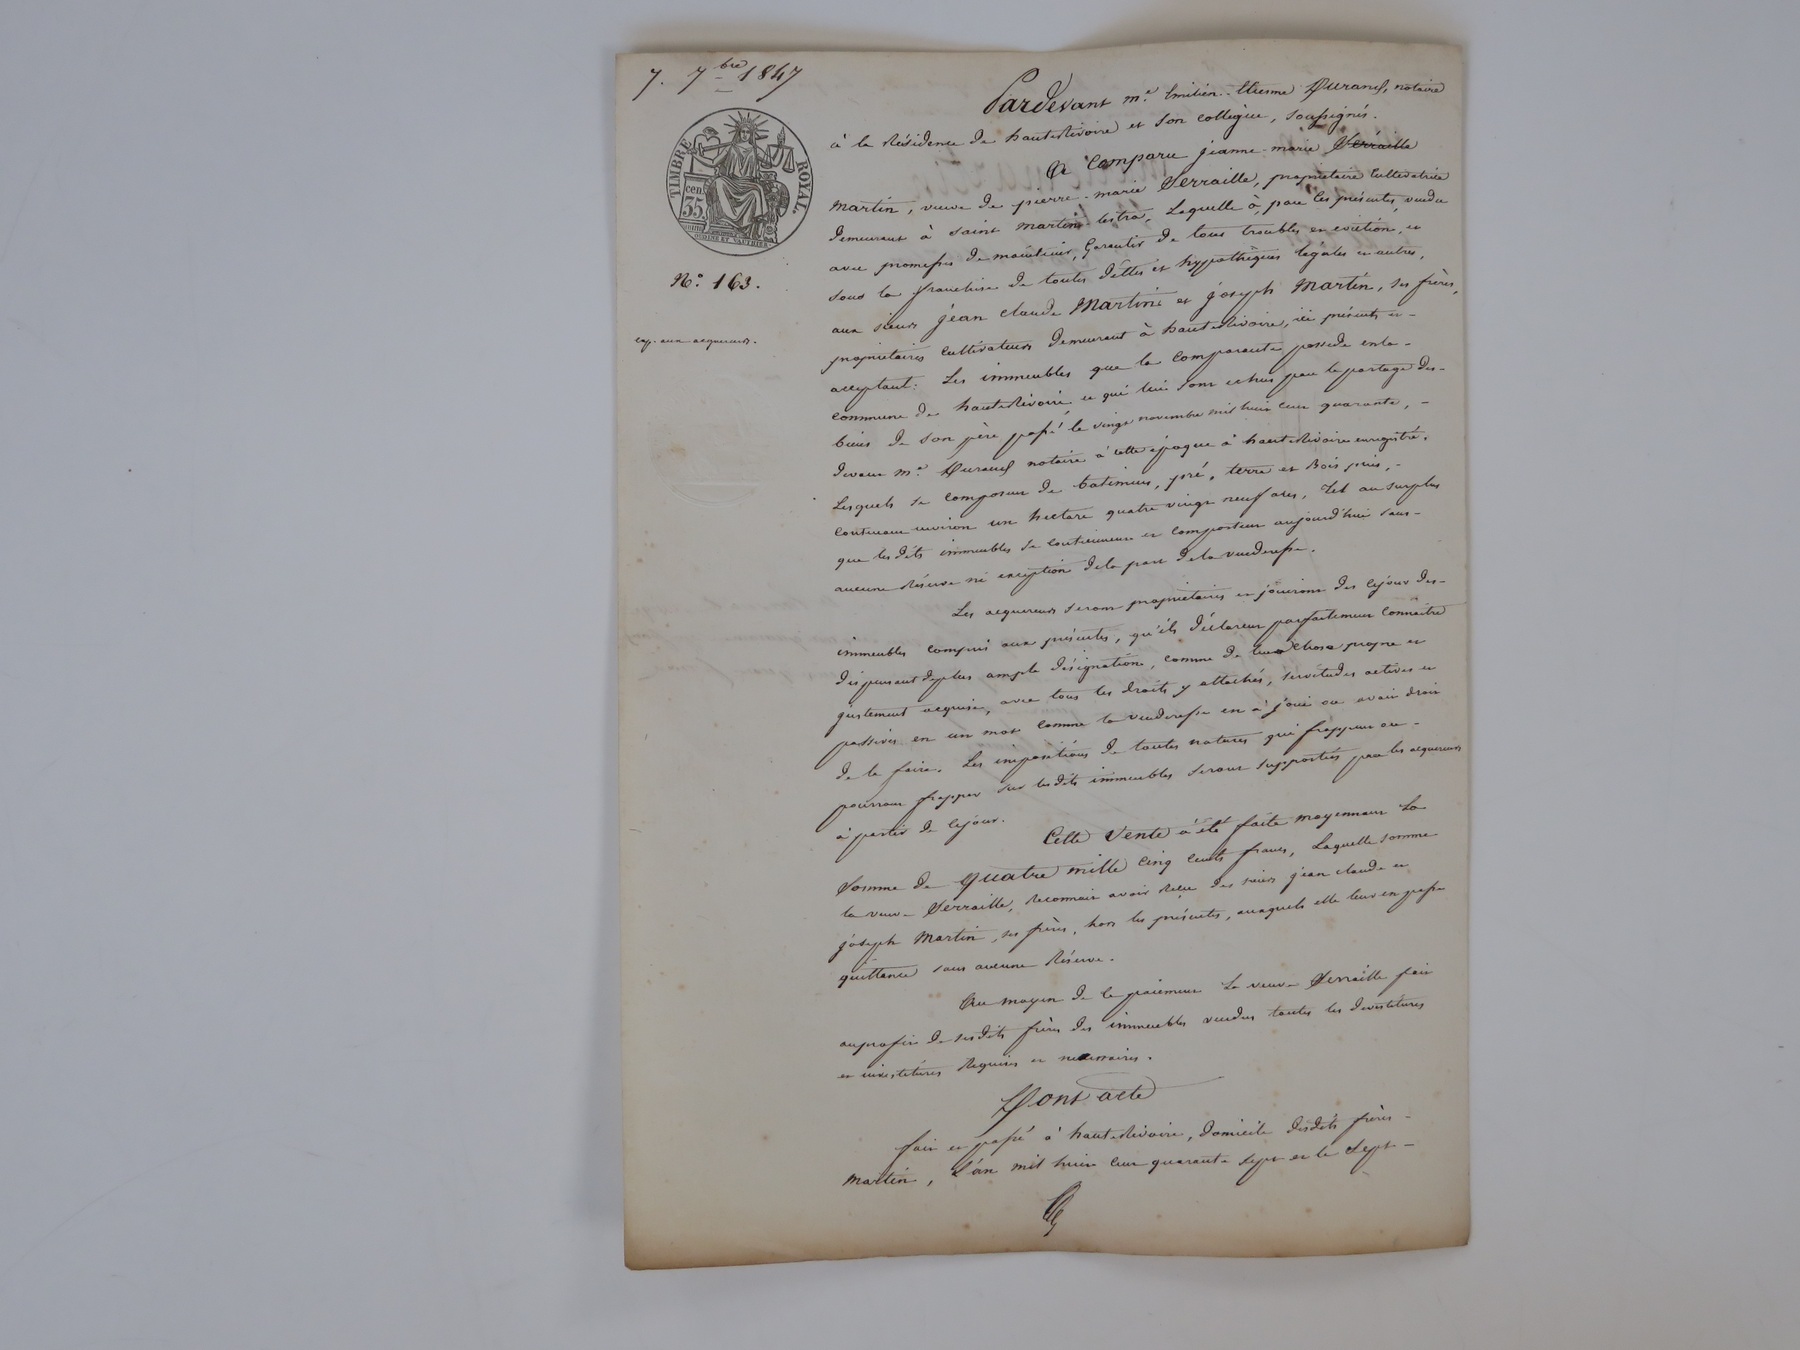 7. 7bre 1847
TIMBRE ROYAL.
35 cen
N° 163.
exp. aux acquereurs.
Pardevant me. Emilien-Etienne Durand, notaire
à la Résidence de hauterivoire et son collègue, soussignés.
A Comparu jeanne-marie Serraille
Martin, veuve de pierre-marie Serraille, propriétaire cultivatrice
demeurant à saint martin lestra, Laquelle à, par ces présentes, vendu
avec promesses de maintenir, Garantir de tous troubles et éviction, et
sous la franchise de toutes dettes et hypothèques légales et autres,
aux sieurs jean claude Martin et joseph Martin, ses frères,
propriétaires cultivateurs demeurant à hauterivoire, ici présents et
acceptant: Les immeubles que la Comparante possede en la
commune de hauterivoire et qui lui sont echus par le partage des
biens de son père passé le vingt novembre mil huit cent quarante,
devant me. Durand notaire à cette époque à hauterivoire enregistré.
Lesquels se composent de batimens, pré, terre et Bois pins,
contenant environ un hectare quatre vingt neuf ares, Tel au surplus
que lesdits immeubles se contiennent et comportent aujourd'hui sans
aucune Réserve ni exception de la part de la venderesse.
Les acquereurs seront propriétaires et jouiront dès cejour des
immeubles compris aux présentes, qu'ils déclarent parfaitement connaître
dispensant deplus ample désignation, comme de leur chose propre et
justement acquise, avec tous les droits y attachés, servitudes actives et
passives en un mot comme la venderesse en à joui ou avait droit
de le faire. Les impositions de toutes natures qui frappent ou
pourront frapper sur lesdits immeubles seront supportées par les acquereurs
à partir de cejour.
Cette Vente à été faite moyennant La
Somme de quatre mille cinq cents francs, Laquelle somme
la veuve Serraille, Reconnait avoir Reçue des sieurs jean claude et
joseph Martin, ses frères, hors les présentes, auxquels elle leur en passe
quittance sans aucune Réserve.
Au moyen de ce paiement La veuve Serraille fait
auprofit de sesdits frères des immeubles vendus toutes les devestitures
et investitures Requises et necessaires.
Dont acte
fait et passé à hauterivoire, domicile desdits frères
Martin, L'an mil huit cent quarante sept et le sept